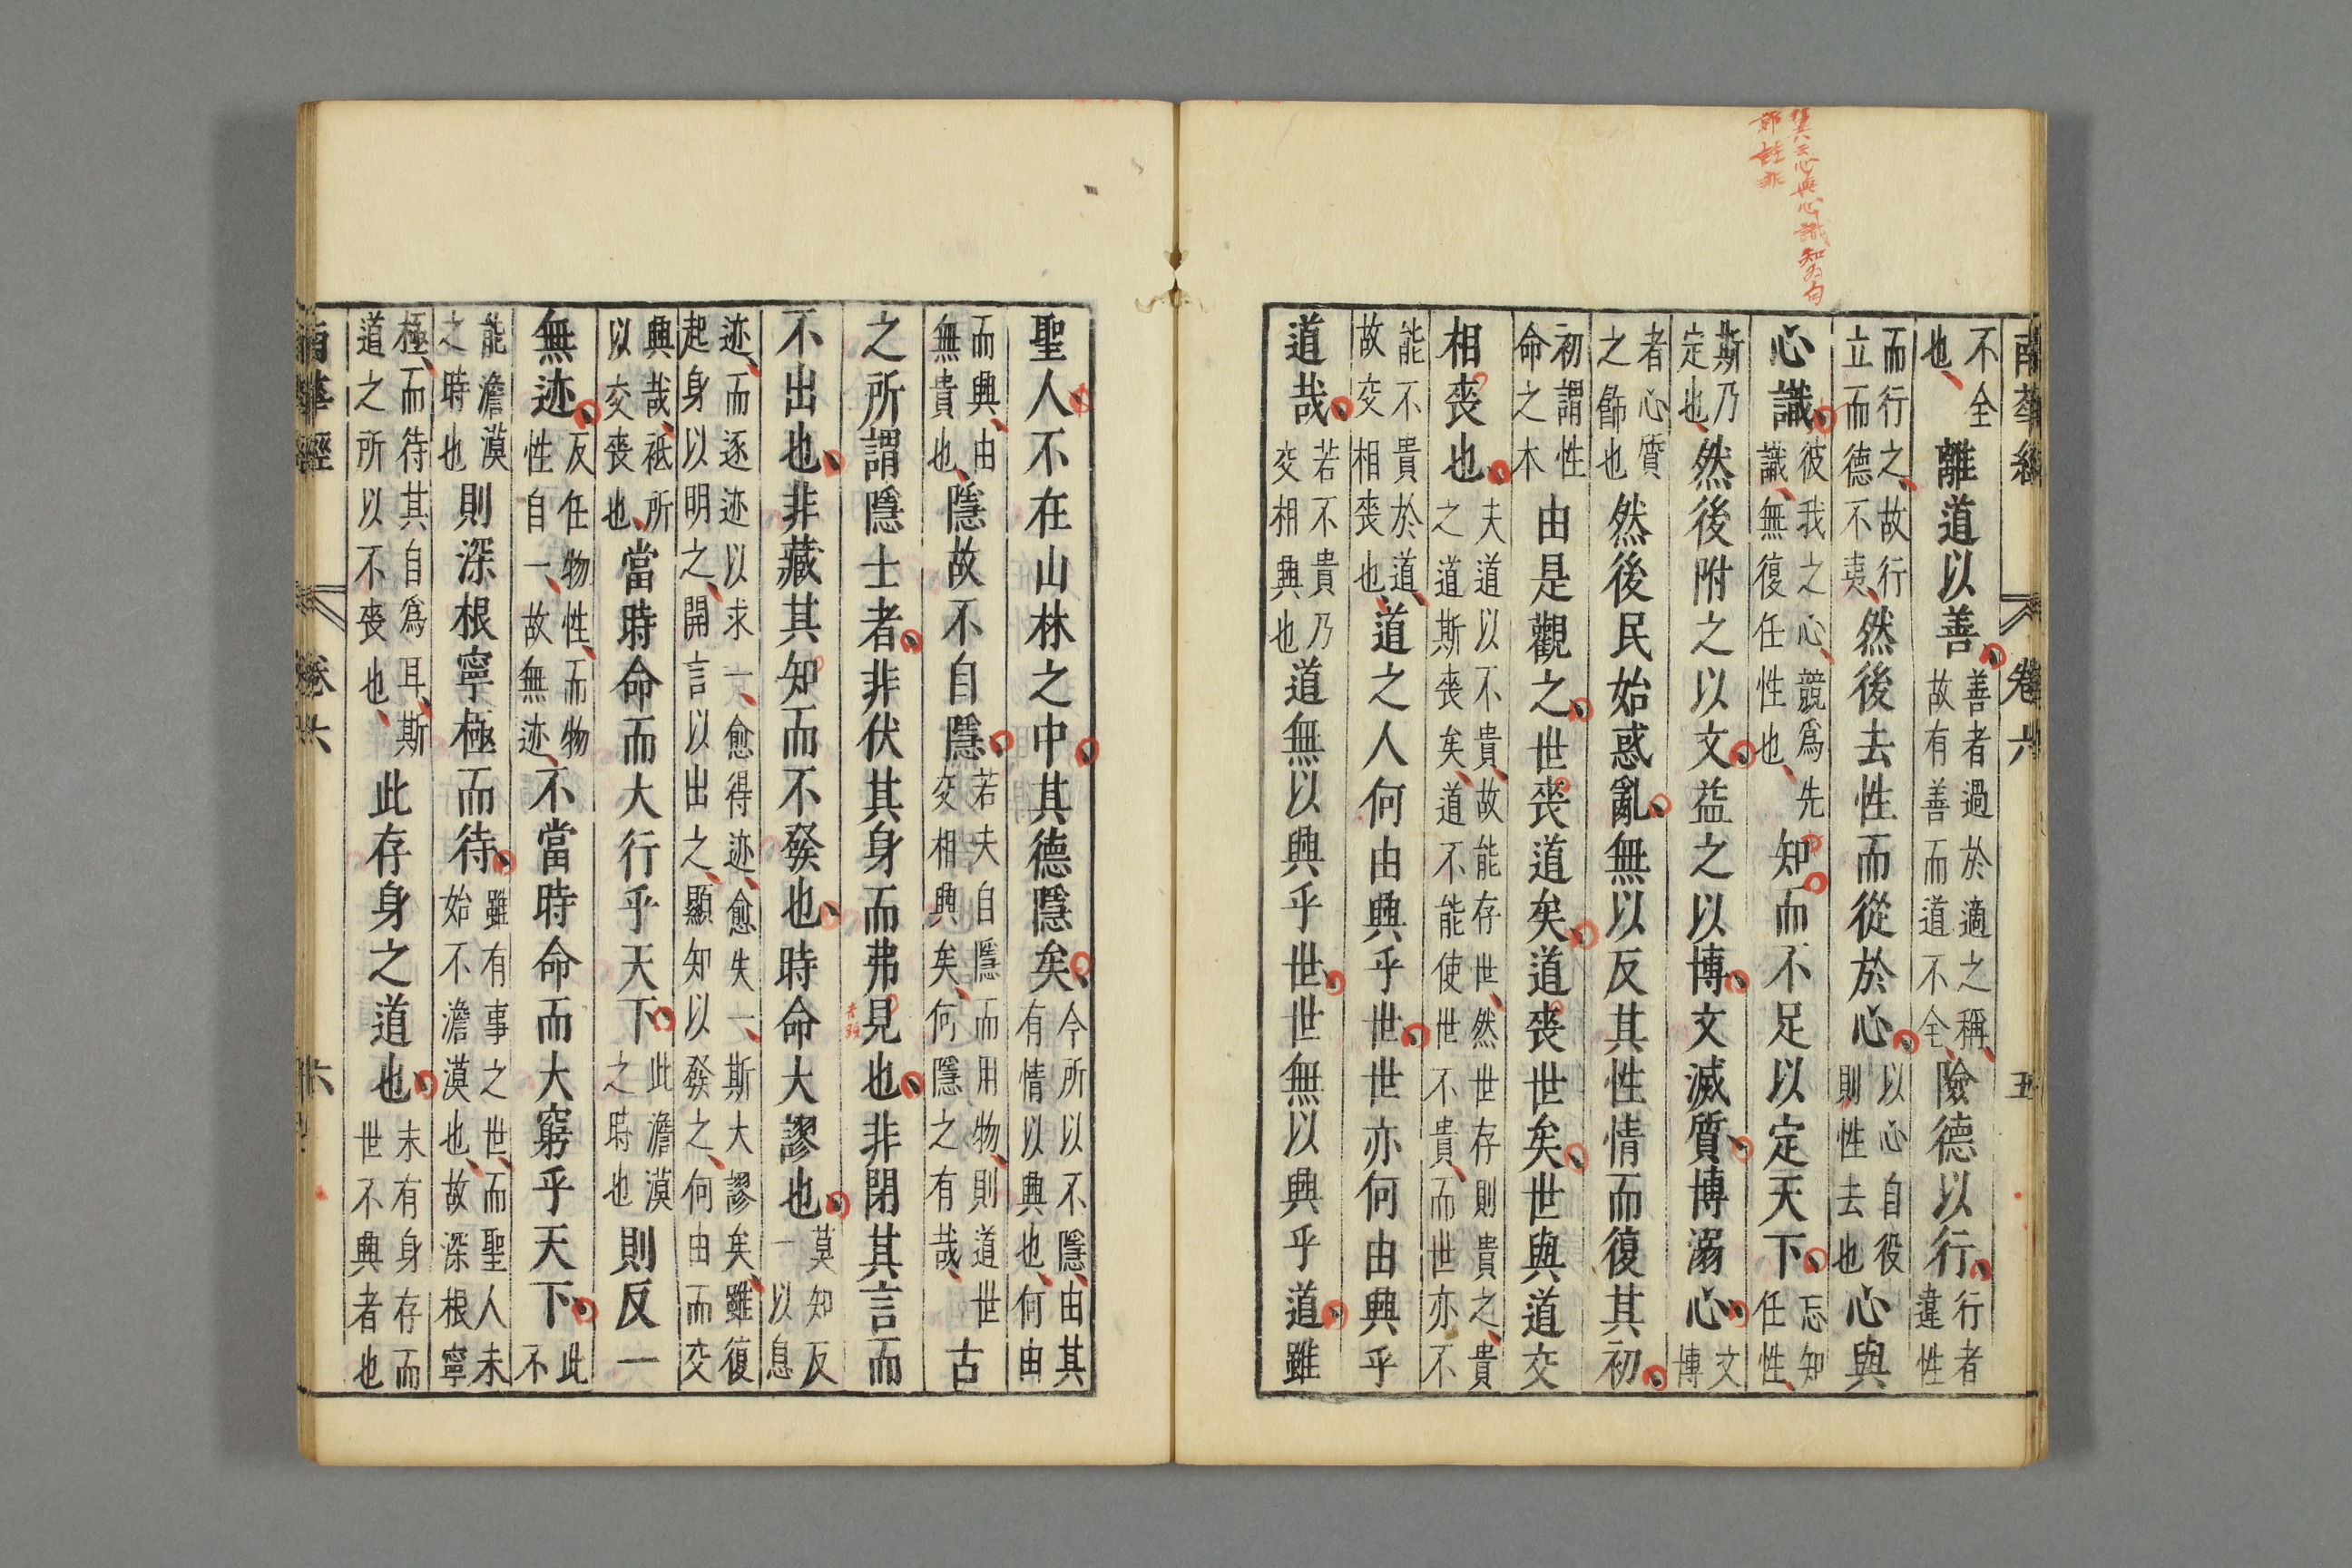 翼云心與心識知为句
郭註非
南華經 卷六 五
不全也離道以善善者過於適之稱故有善而道不全險德以行行者違性
而行之故行立而德不夷然後去性而從於心以心自役則性去也心與
心識彼我之心競爲先識無復任性也知而不足以定天下忘知任性
斯乃定也然後附之以文益之以博文滅質博溺心文博
者心質之飾也然後民始惑亂無以反其性情而復其初
初謂性命之木由是觀之世喪道矣道喪世矣世與道交
相喪也夫道以不貴故能存世然世存則貴之貴之道斯喪矣道不能使世不貴而世亦不
能不貴於道故交相喪也道之人何由興乎世世亦何由興乎
道哉若不貴乃交相興也道無以興乎世世無以興乎道雖
聖人不在山林之中其德隱矣今所以不隱由其有情以興也何由
而興由無貴也隱故不自隱若夫自隱而用物則道世交相興矣何隱之有哉古
之所謂隱士者非伏其身而弗見也非閉其言而
不出也非藏其知而不發也時命大謬也莫知反一以息
迹而逐迹以求一愈得迹愈失一斯大謬矣雖復起身以明之開言以出之顯知以發之何由而交
興哉祇所以交喪也當時命而大行乎天下此澹漠之時也則反一
無迹反任物性而物性自一故無迹不當時命而大窮乎天下此不
能澹漠之時也則深根寧極而待雖有事之世而聖人未始不澹漠也故深根寧
極而待其自爲耳斯道之所以不喪也此存身之道也未有身存而世不興者也
南華經 卷六 六